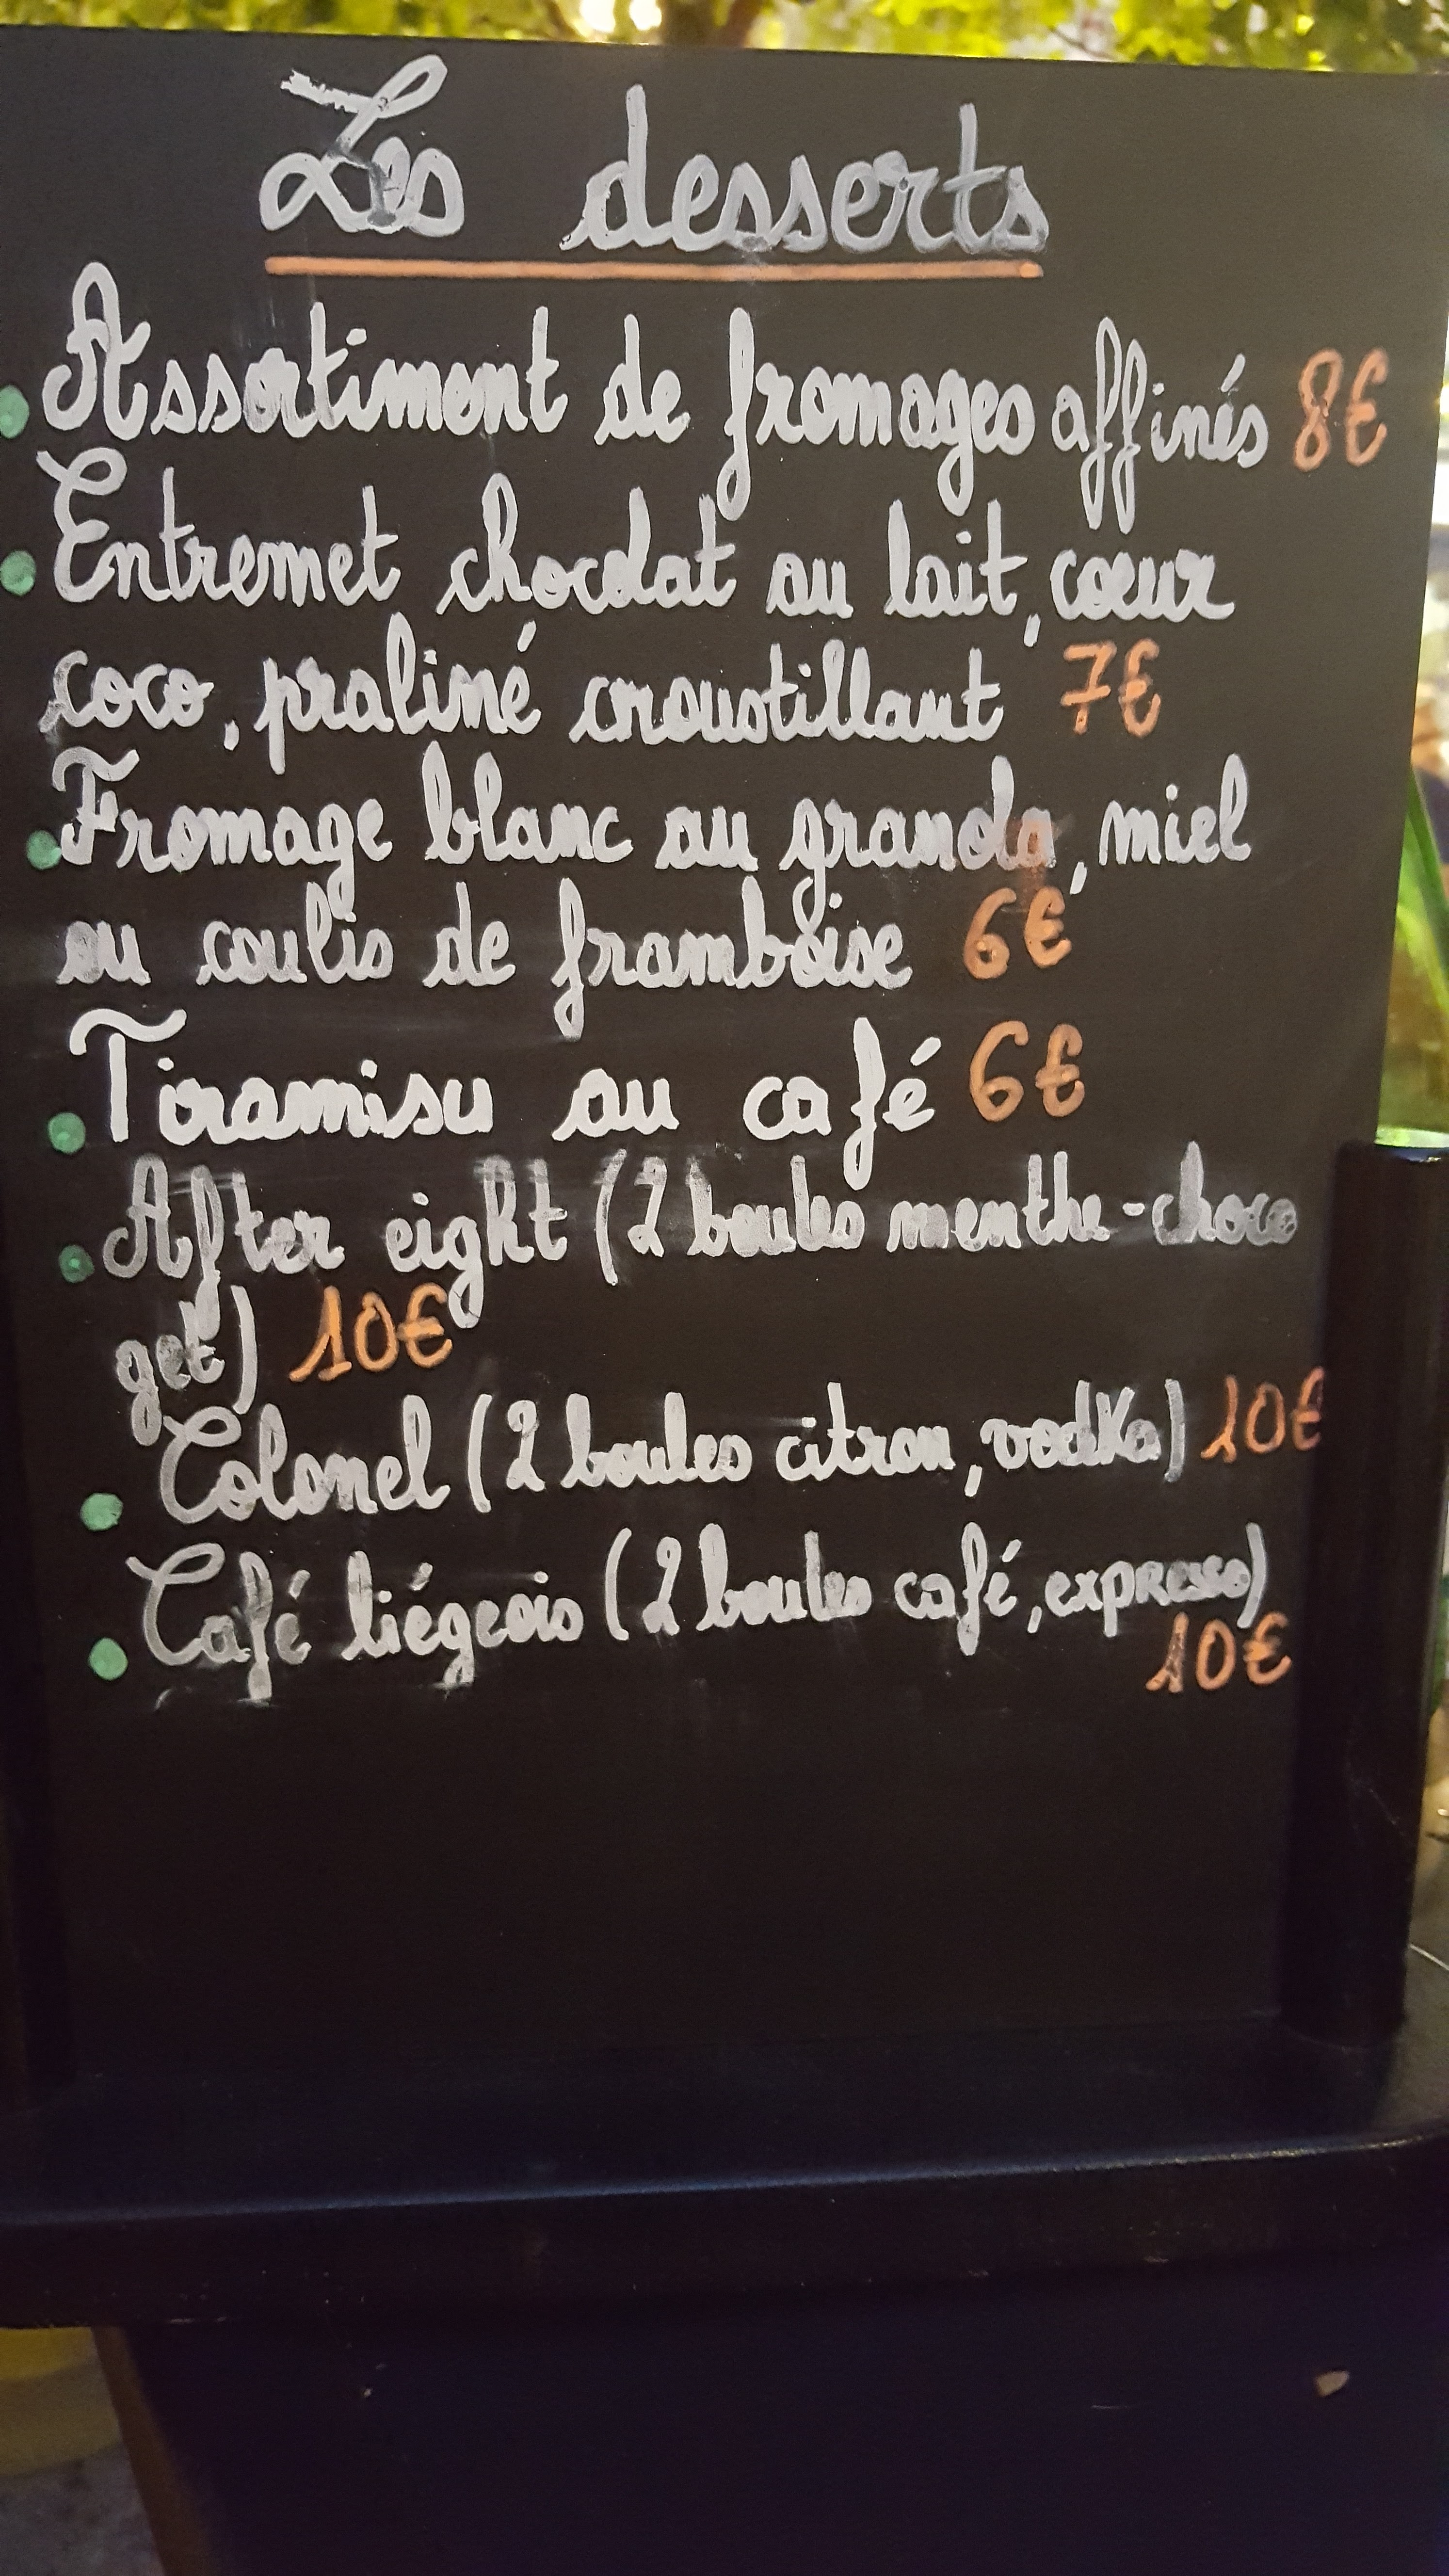 Les desserts
Assortiment de fromages affinés 8€
Entremet chocolat au lait, cœur
coco, praliné croustillant 7€
Fromage blanc au granola, miel
ou coulis de framboise 6€
Tiramisu au café 6€
After eight (2 boules menthe-choco
get) 10€
Colonel (2 boules citron, vodka) 10€
Café liégeois (2 boules café, expresso)
10€